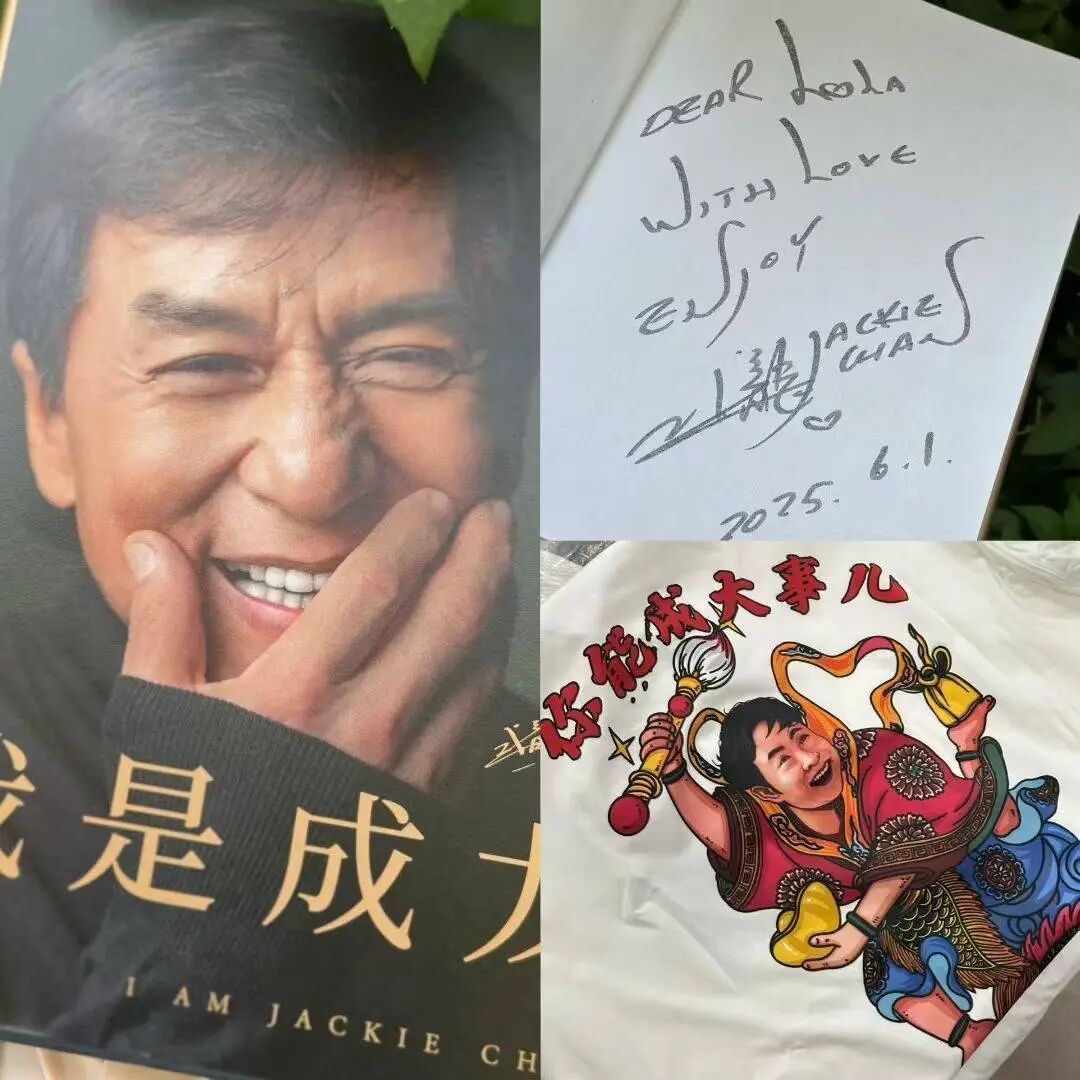 我是成
I AM JACKIE CH
DEAR LOOLA
WITH LOVE
ENJOY
JACKIE
CHAN
2025. 6.1.
你能成大事儿